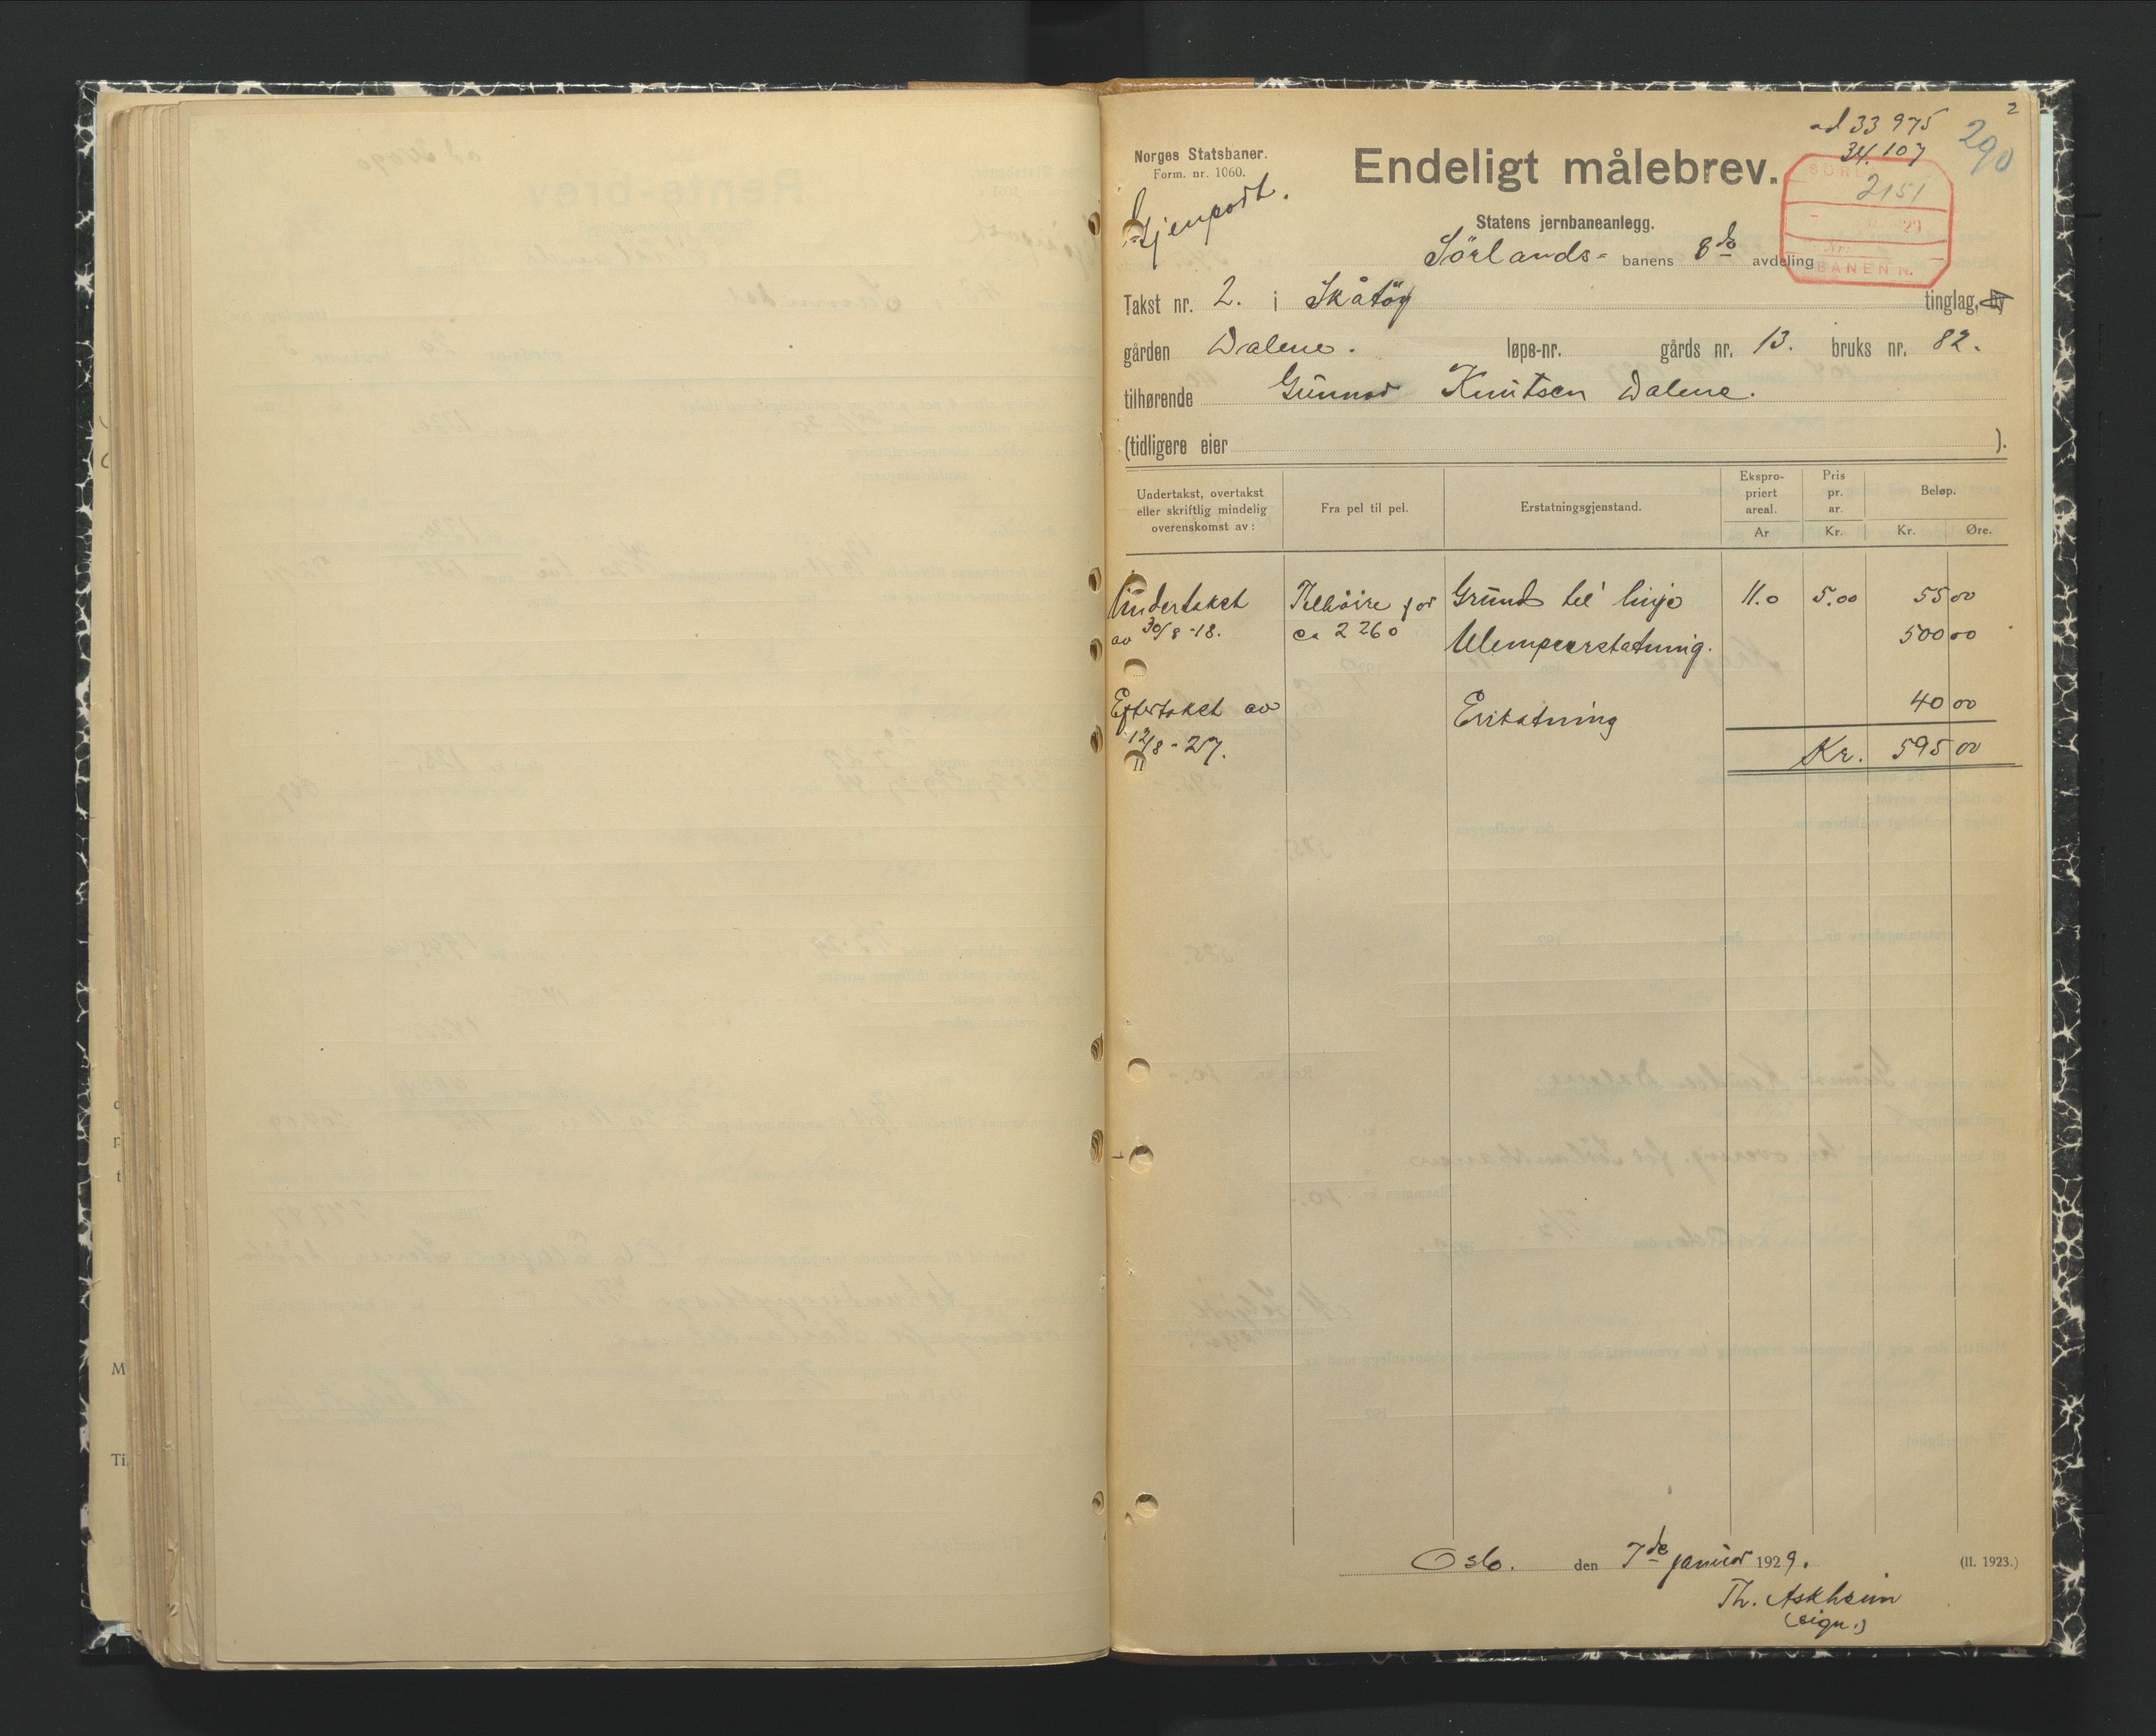 2
ad 33 975
34.107
290
Norges Statsbaner.
Form. nr. 1060.
Gjenpart.
Endeligt målebrev.
2151
29
BANEN N.
Statens jernbaneanlegg.
Sörlands- banens 8de avdeling
Takst nr. 2. i Skåtöy tinglag, by
gården Dalene. løpe-nr. gårds nr. 13. bruks nr. 82.
tilhørende Gunnar Knutsen Dalene.
(tidligere eier ).
Undertakst, overtakst eller skriftlig mindelig overenskomst av:
Fra pel til pel.
Erstatningsgjenstand.
Ekspro-priert areal.
Ar
Pris pr. ar.
Kr.
Beløp.
Kr. Øre.
Undertakst Tilhöire for Grund til linje 11.0 5.00 55 00
av 30/8-18. ca 2260 Ulempeerstatning. 500 00
Eftertakst av Erstatning 40 00
12/8-27. Kr. 595 00
Oslo. den 7de januar 1929. (II. 1923.)
Th. Askheim
(sign.)